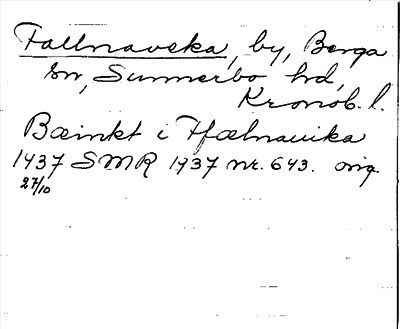 Fallnaveka, by, Berga
sn, Sunnerbo hd,
Kronob. l.
Bæinkt i Hfælnauika
1437 SMR 1937 nr. 643. orig.
27/10